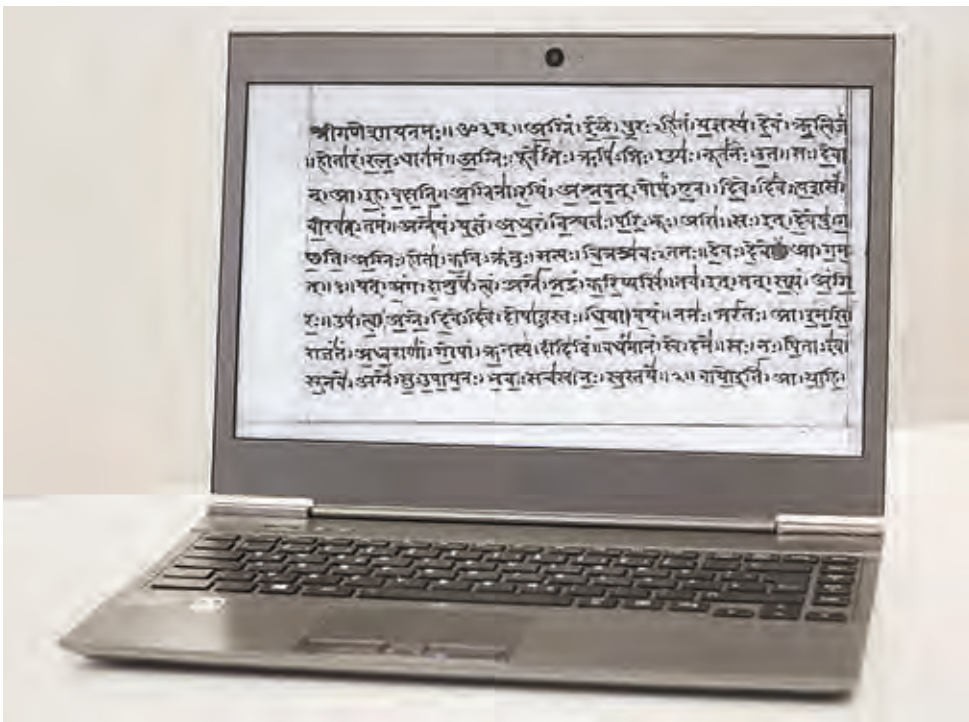 श्रीगणेशायनमः॥ॐ३म्॥अग्निं।ईळे।पुरःऽहितं।यज्ञस्य।देवं।ऋत्विजं
॥होतारं।रत्नऽधातमं॥अग्निः।पूर्वेभिः।ऋषिभिः।ईड्यः।नूतनैः।उत॥सः।देवा
न्।आ।इह।वक्षति॥अग्निना।रयिं।अश्नवत्।पोषं।एव।दिवेऽदिवे॥यशसं।
वीरवत्ऽतमं॥अग्ने।यं।यज्ञं।अध्वरं।विश्वतः।परिऽभूः।असि॥सः।इत्।देवेषु।ग
च्छति॥अग्निः।होता।कविऽक्रतुः।सत्यः।चित्रश्रवःऽतमः॥देवः।देवेभिः।आ।गम
त्॥१॥यत्।अंग।दाशुषे।त्वं।अग्ने।भद्रं।करिष्यसि॥तव।इत्।तत्।सत्यं।अंगि
रः॥उप।त्वा।अग्ने।दिवेऽदिवे।दोषाऽवस्तः।धिया।वयं॥नमः।भरंतः।आ।इमसि॥
राजंतं।अध्वराणां।गोपां।ऋतस्य।दीदिविं॥वर्धमानं।स्वे।दमे॥सः।नः।पिताऽइव।
सूनवे।अग्ने।सुऽउपायनः।भव॥सचस्व।नः।स्वस्तये॥२॥वायोइति।आ।याहि।